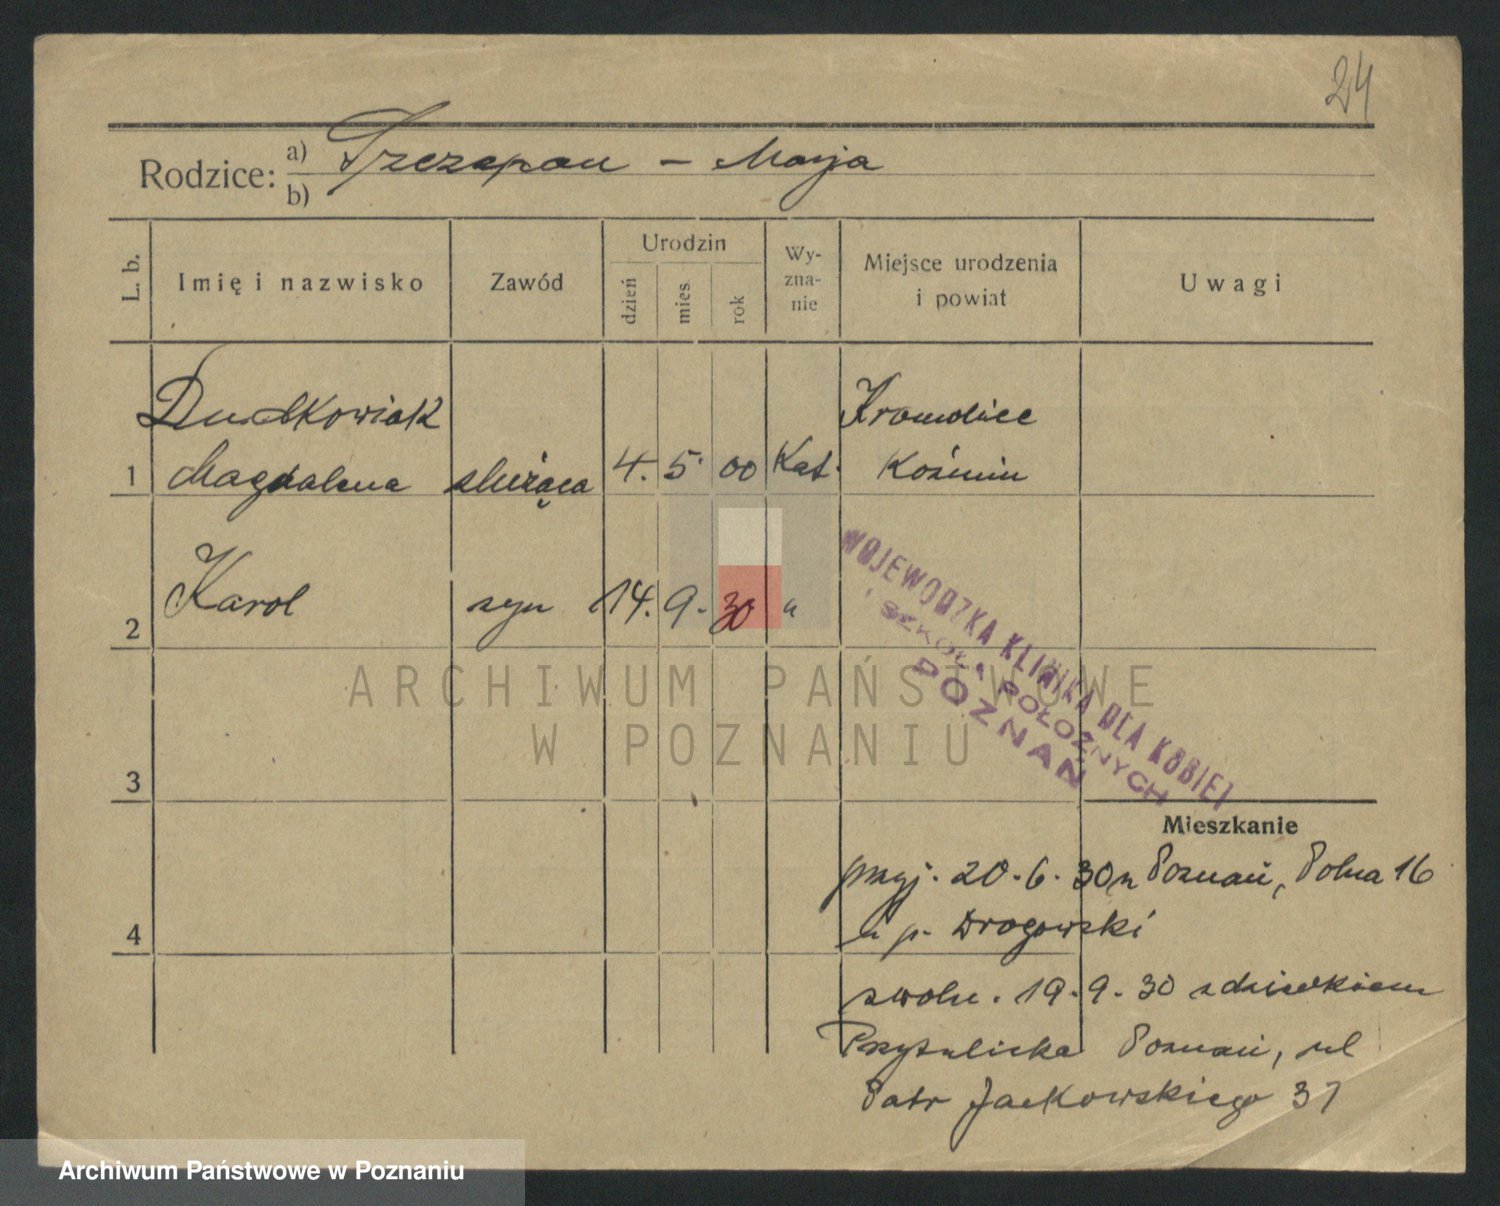 24
Rodzice: a) b) Szczepan – Marja
L. b. Imię i nazwisko Zawód Urodzin dzień mies. rok Wyznanie Miejsce urodzenia i powiat Uwagi
Dudkowiak Kromolice
1 Magdalena służąca 4. 5. 00 Kat. Koźmin
2 Karol syn 14. 9. 30 "
WOJEWÓDZKA KLINIKA DLA KOBIET
I SZKOŁA POŁOŻNYCH
POZNAŃ
ARCHIWUM PAŃSTWOWE
W POZNANIU
3
Mieszkanie
przyj. 20. 6. 30 z Poznań, Polna 16
4 u p. Drogowski
zwoln. 19. 9. 30 z dzieckiem
Poznań, ul
Patr Jackowskiego 37
Archiwum Państwowe w Poznaniu